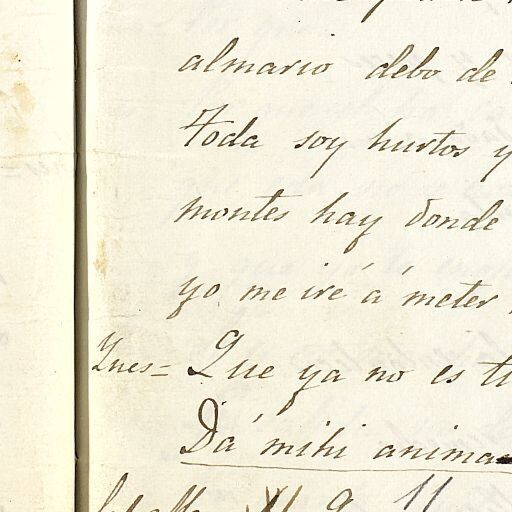 almario debo de
Toda soy hurtos y
montes hay donde
yo me iré á meter
Ynes= Que ya no es ti
Dá mihi anima